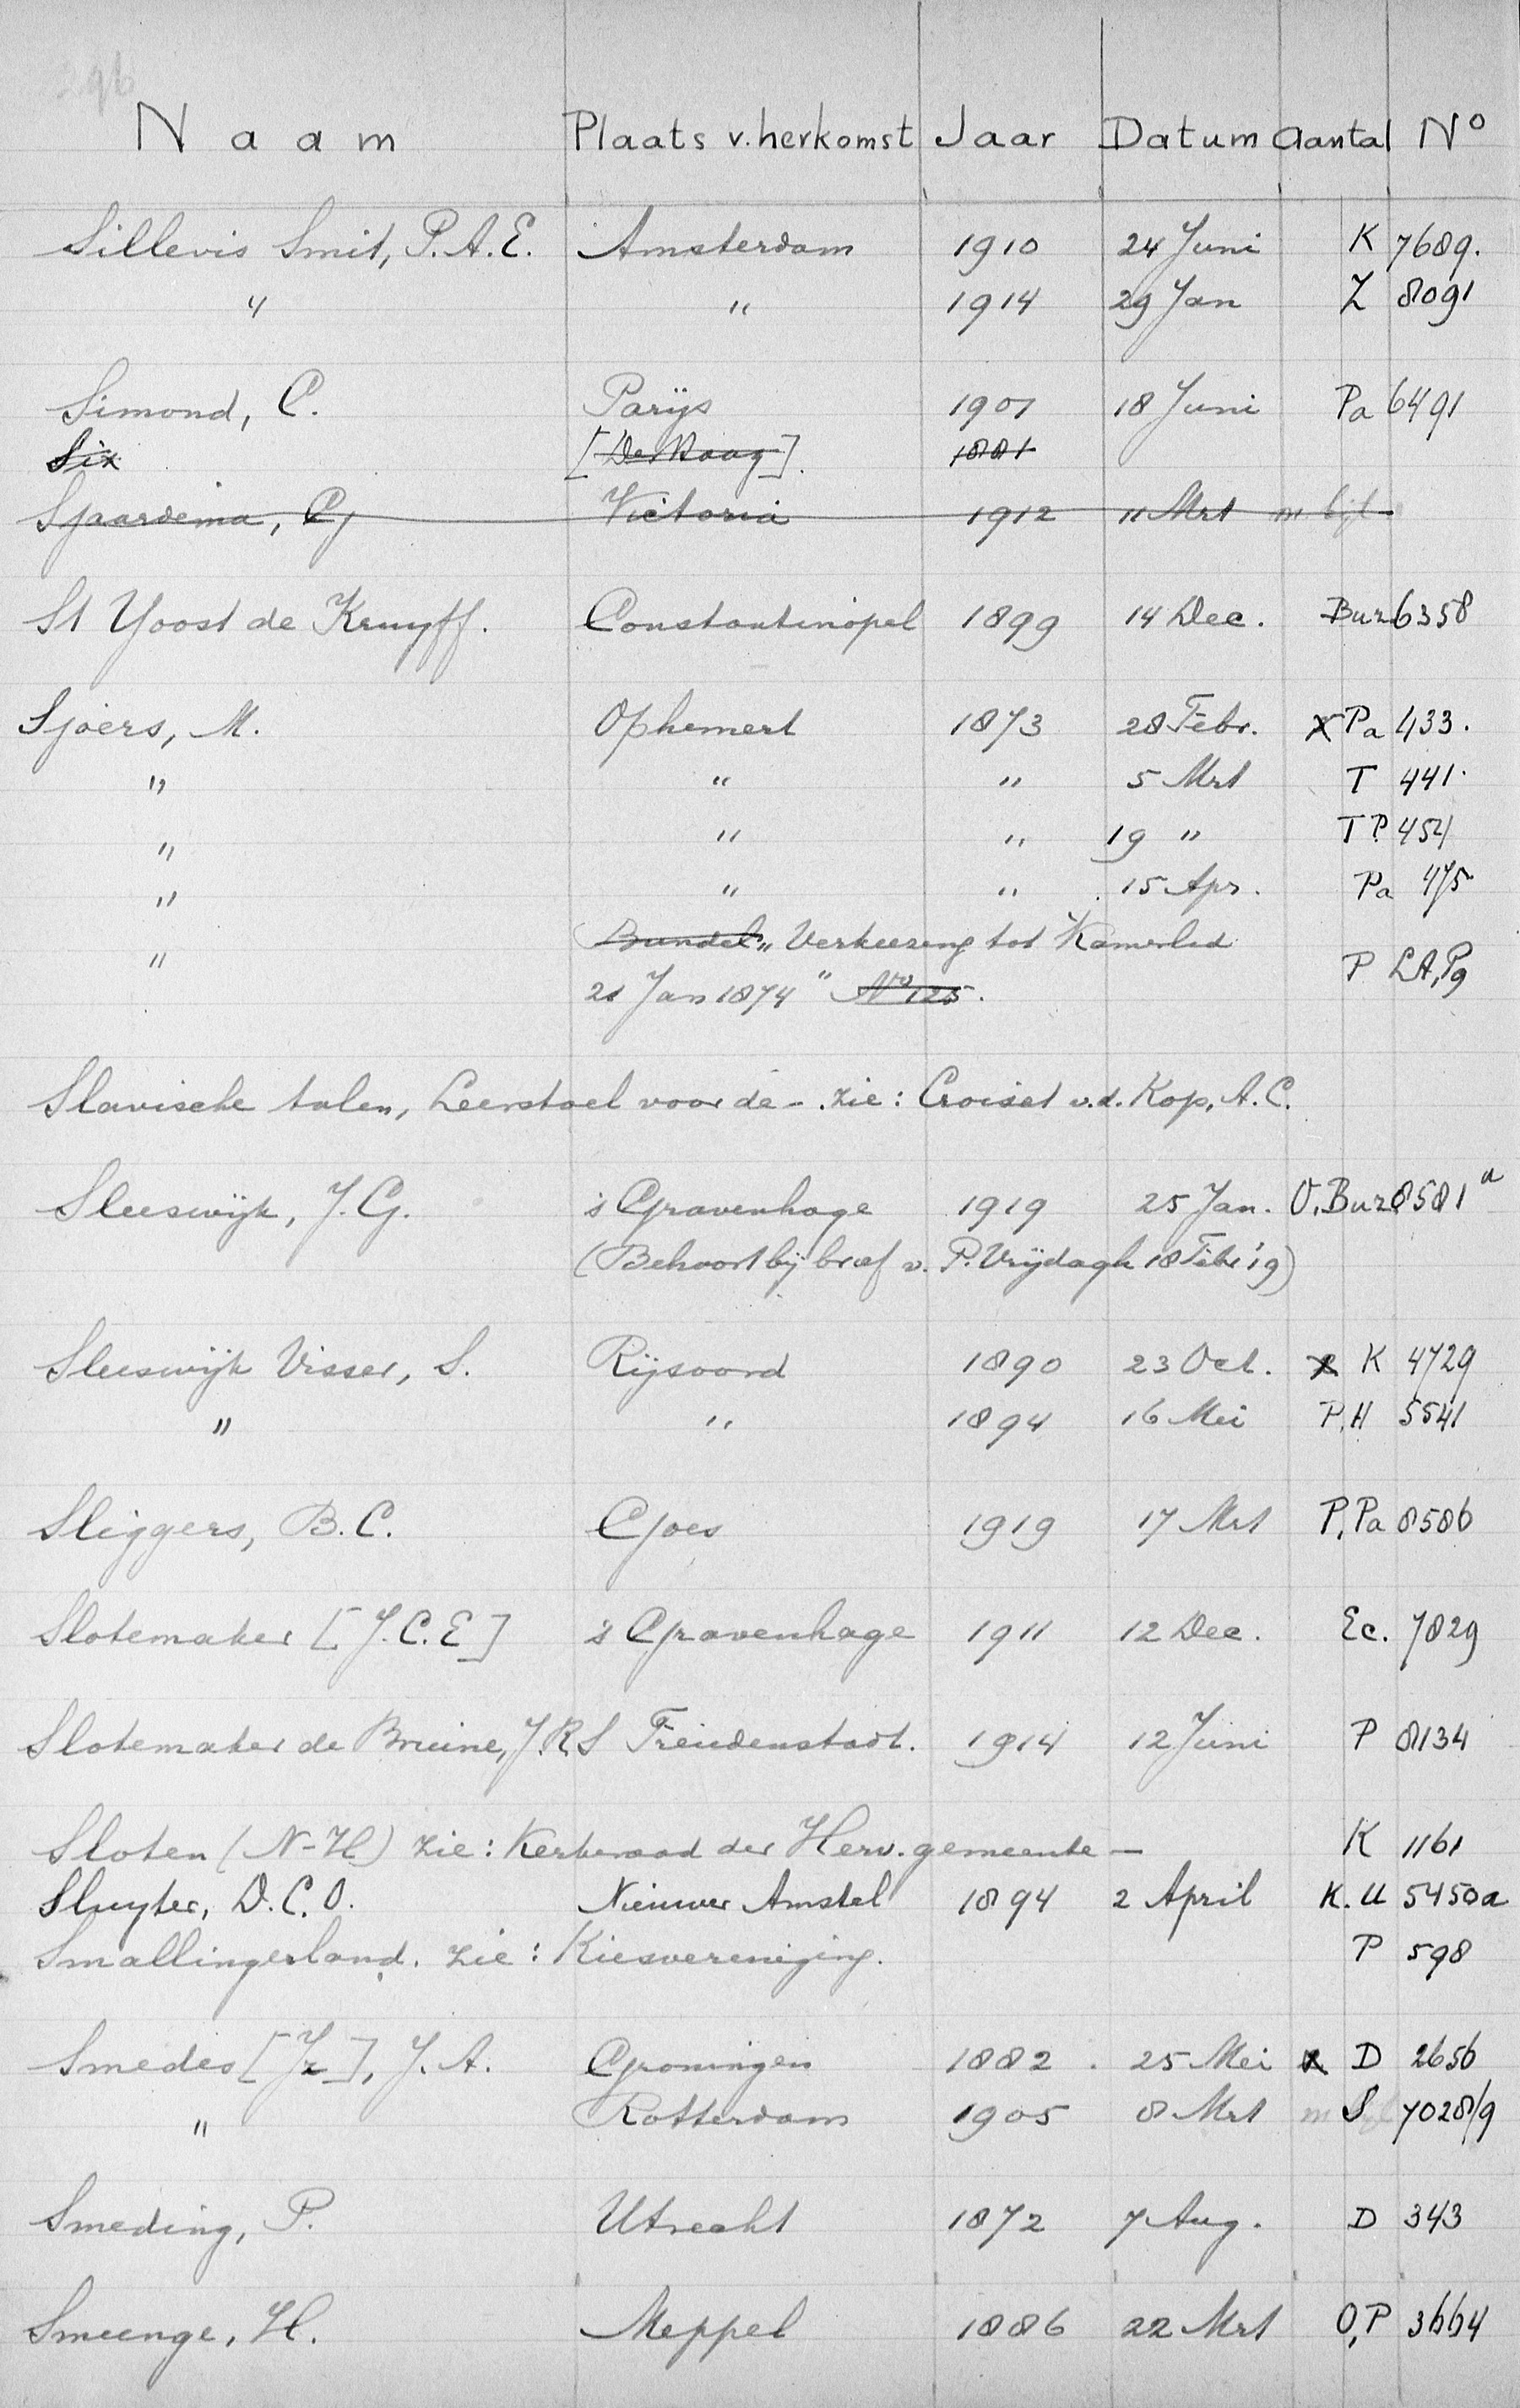 296
Naam Plaats v. herkomst Jaar Datum Aantal No
Sillevis Smit, P.A.E. Amsterdam 1910 24 Juni K 7689.
" " 1914 29 Jan Z 8091
Simond, C. Parijs 1901 18 Juni Pa 6491
Six [Den Haag]. 1881
Sjaardema, G Victoria 1912 11 Mrt m. bijl
St Yoost de Kruyff. Constantinopel 1899 14 Dec. Buz 6358
Sjoers, M. Ophemert 1873 28 Febr. x Pa 433.
" " " 5 Mrt T 441.
" " " 19 " T P. 454
" " " 15 Apr. Pa 475
" Bundel „Verkiezing tot Kamerlid P LA, Pg
21 Jan 1874" No 125.
Slavische talen, Leerstoel voor de -. zie: Croiset v.d. Kop, A.C.
Sleeswijk, J.G. 's Gravenhage 1919 25 Jan. O, Buz 8581a
(Behoort bij brief v. P. Vrijdagh 18 Febr '19)
Sleeswijk Visser, S. Rijsoord 1890 23 Oct. x K 4729
" " 1894 16 Mei P, H 5541
Sliggers, B.C. Goes 1919 17 Mrt P, Pa 8586
Slotemaker [J.C.E] 's Gravenhage 1911 12 Dec. Ec. 7829
Slotemaker de Bruine, J.R.S Freudenstadt. 1914 12 Juni P 8134
Sloten (N-H) zie: Kerkeraad der Herv. gemeente - K 1161
Sluyter, D.C.O. Nieuwer Amstel 1894 2 April K. U 5450a
Smallingerland. zie: Kiesvereniging. P 598
Smedes [Jz], J.A. Groningen 1882. 25 Mei x D 2656
" Rotterdam 1905 8 Mrt m S 7028/9
Smeding, P. Utrecht 1872 7 Aug. D 343
Smeenge, H. Meppel 1886 22 Mrt O, P 3664